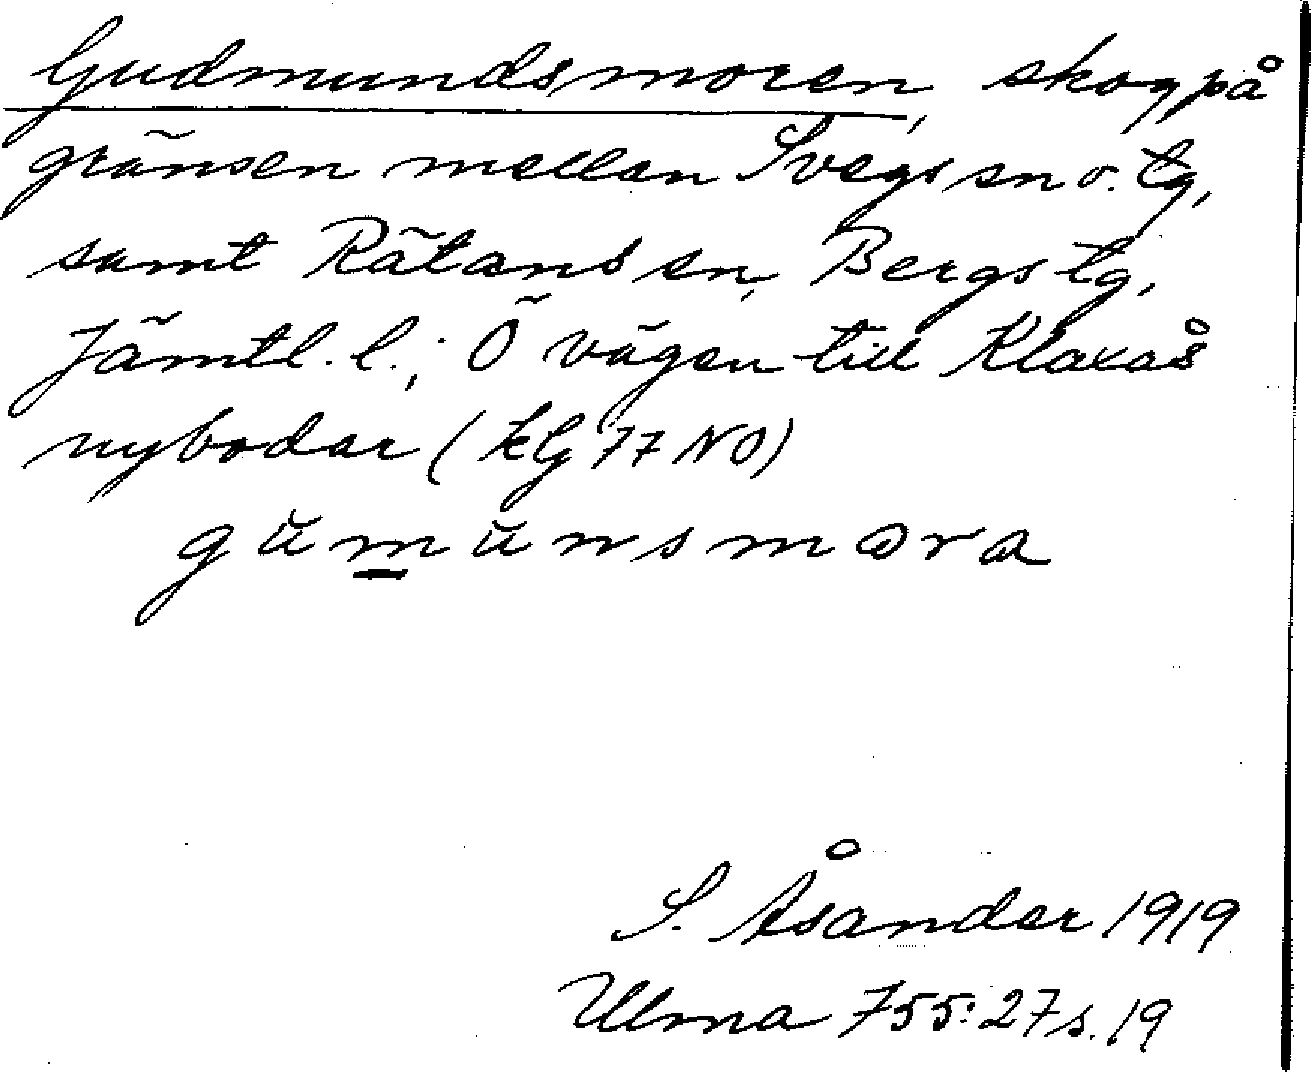 Gudmundsmoren, skog på
gränsen mellan Svegs sn o. tg,
samt Rätans sn, Bergs tg,
Jämtl. l.; Ö vägen till Klaxås
nybodar (kG 77 NO)
gŭm̲ŭnsmora
S. Åsander 1919
Ulma 755:27 s. 19